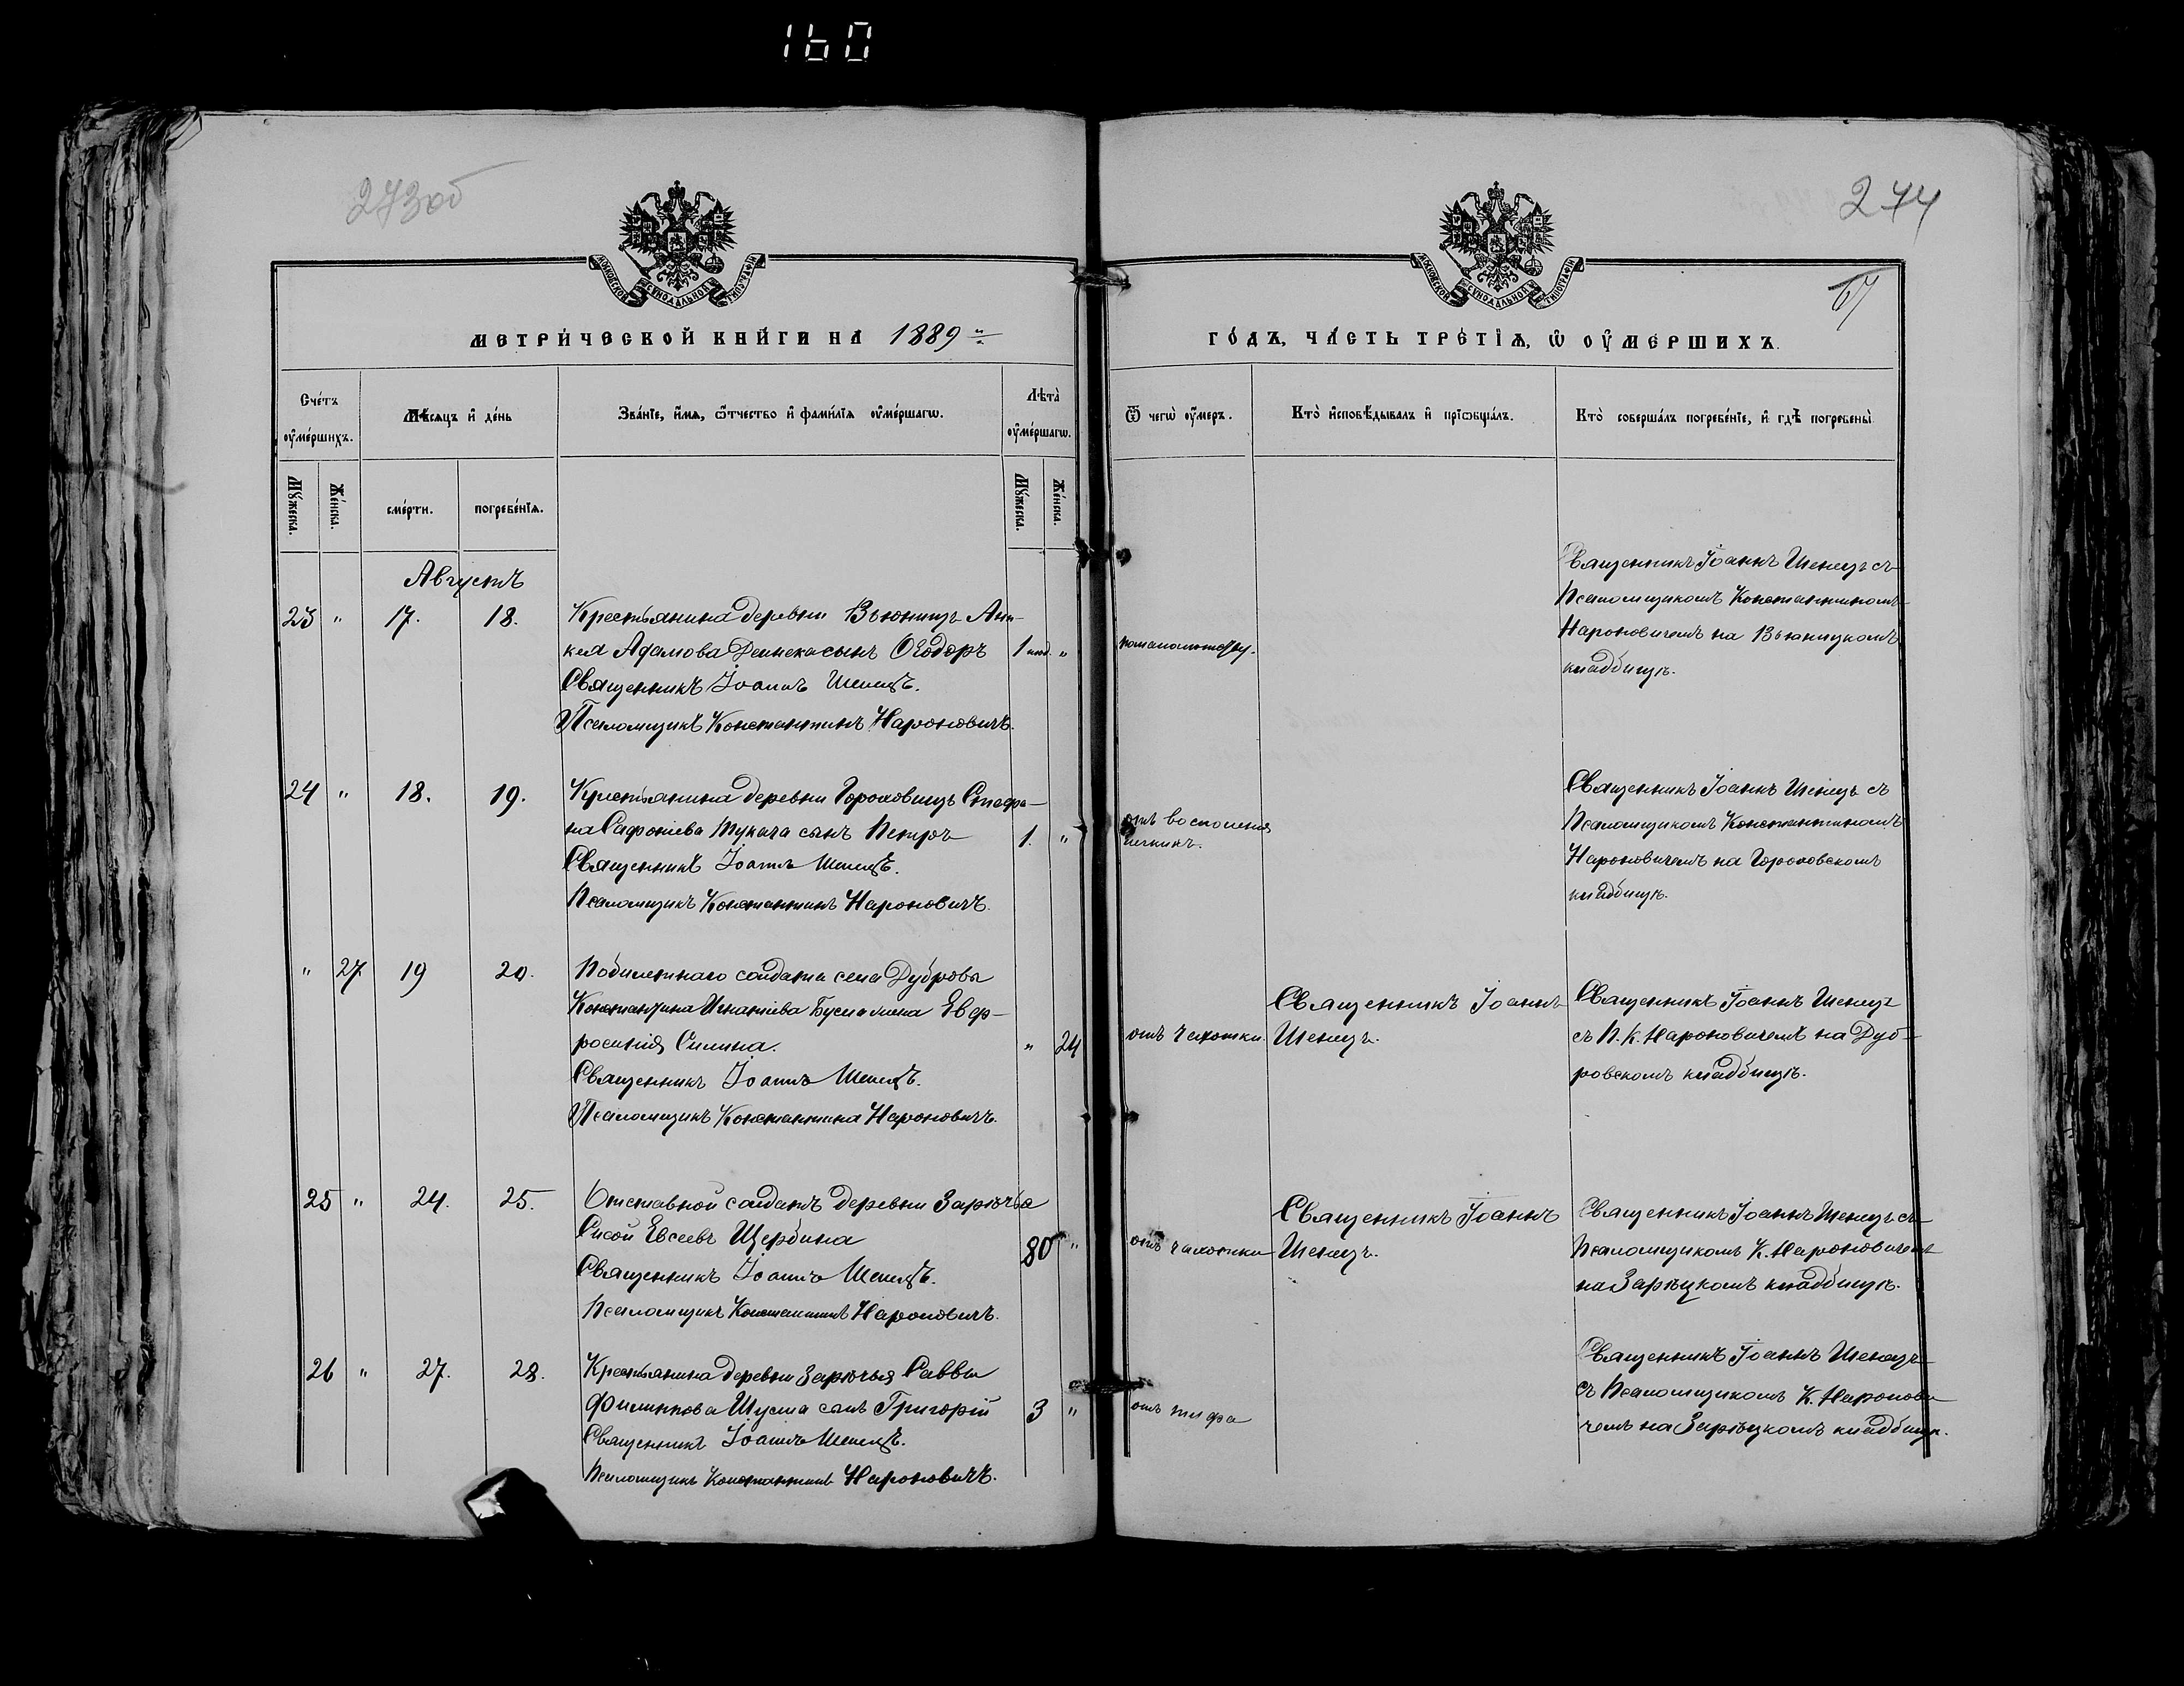 160
273об
274
67
МОСКОВСКОЙ СѴНОДАЛЬНОЙ ТИПОГРАФІИ
МОСКОВСКОЙ СѴНОДАЛЬНОЙ ТИПОГРАФІИ
МЕТРИ́ЧЕСКОЙ КНИ́ГИ НА 1889й
ГО́ДЪ, ЧА́СТЬ ТРЕ́ТІѦ, Ѡ҆ ОУ҆МЕ́РШИХЪ.
Сче́тъ оу҆ме́ршихъ.
Мѣ́сяцъ и҆ де́нь
Зва́нїе, и҆́мя, ѻ҆́тчество и҆ фами́лїя оу҆ме́ршагѡ.
Лѣта̀ оу҆ме́ршагѡ.
Ѿ чегѡ̀ оу҆́меръ.
Кто̀ и҆сповѣ́дывалъ и҆ прїѡбща́лъ.
Кто̀ соверша́лъ погребе́нїе, и҆ гдѣ̀ погребены̀.
Мꙋ́жеска.
Же́нска.
сме́рти.
погребе́нїя.
Мꙋ́жеска.
Же́нска.
Августъ
23 " 17. 18. Крестьянина деревни Вьюнищъ
Адамова Дейнека сынъ Ѳеодоръ 1 "
Священникъ Іоаннъ Шенецъ.
Псаломщикъ Константинъ Нароновичъ.
Священникъ Іоаннъ Шенецъ съ
Псаломщикомъ Константиномъ
Нароновичемъ на Вьюницкомъ
кладбищѣ.
24 " 18. 19. Крестьянина деревни Гороховищъ Стефа-
на Сафоніева сынъ Петръ 1. "
Священникъ Іоаннъ Шенецъ.
Псаломщикъ Константинъ Нароновичъ.
отъ восполенія
Священникъ Іоаннъ Шенецъ съ
Псаломщикомъ Константиномъ
Нароновичемъ на Гороховскомъ
кладбищѣ.
" 27 19 20. Побилетнаго солдата села Дубровы
Константина Игнатіева Евф-
росинія Силина. " 24
Священникъ Іоаннъ Шенецъ.
Псаломщикъ Константинъ Нароновичъ.
отъ чахотки.
Священникъ Іоаннъ
Шенецъ.
Священникъ Іоаннъ Шенецъ
съ П. К. Нароновичемъ на Дуб-
ровскомъ кладбищѣ.
25 " 24. 25. Отставной солдатъ деревни Зарѣчья
Сисой Евсеевъ Щербина 80 "
Священникъ Іоаннъ Шенецъ.
Псаломщикъ Константинъ Нароновичъ.
отъ чахотки
Священникъ Іоаннъ
Шенецъ.
Священникъ Іоаннъ Шенецъ съ
Псаломщикомъ К. Нароновичемъ
на Зарѣцкомъ кладбищѣ.
26 " 27. 28. Крестьянина деревни Зарѣчья Саввы
Филиппова сынъ Григорій 3 "
Священникъ Іоаннъ Шенецъ.
Псаломщикъ Константинъ Нароновичъ.
отъ тифа
Священникъ Іоаннъ Шенецъ
съ Псаломщикомъ К. Наронови
чемъ на Зарѣцкомъ кладбищѣ.